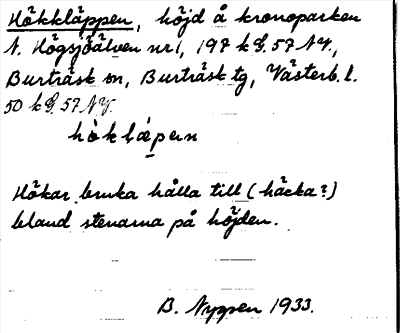 Hökkläppen, höjd å kronoparken
N. Högsjöälven nr 1, 197 k G. 57 NV,
Burträsk sn, Burträsk tg, Västerb. l.
50 k G. 57 NV.
hȯ̀klæpɛn
Hökar bruka hålla till (häcka?)
bland stenarna på höjden.
B. Nyppen 1933.